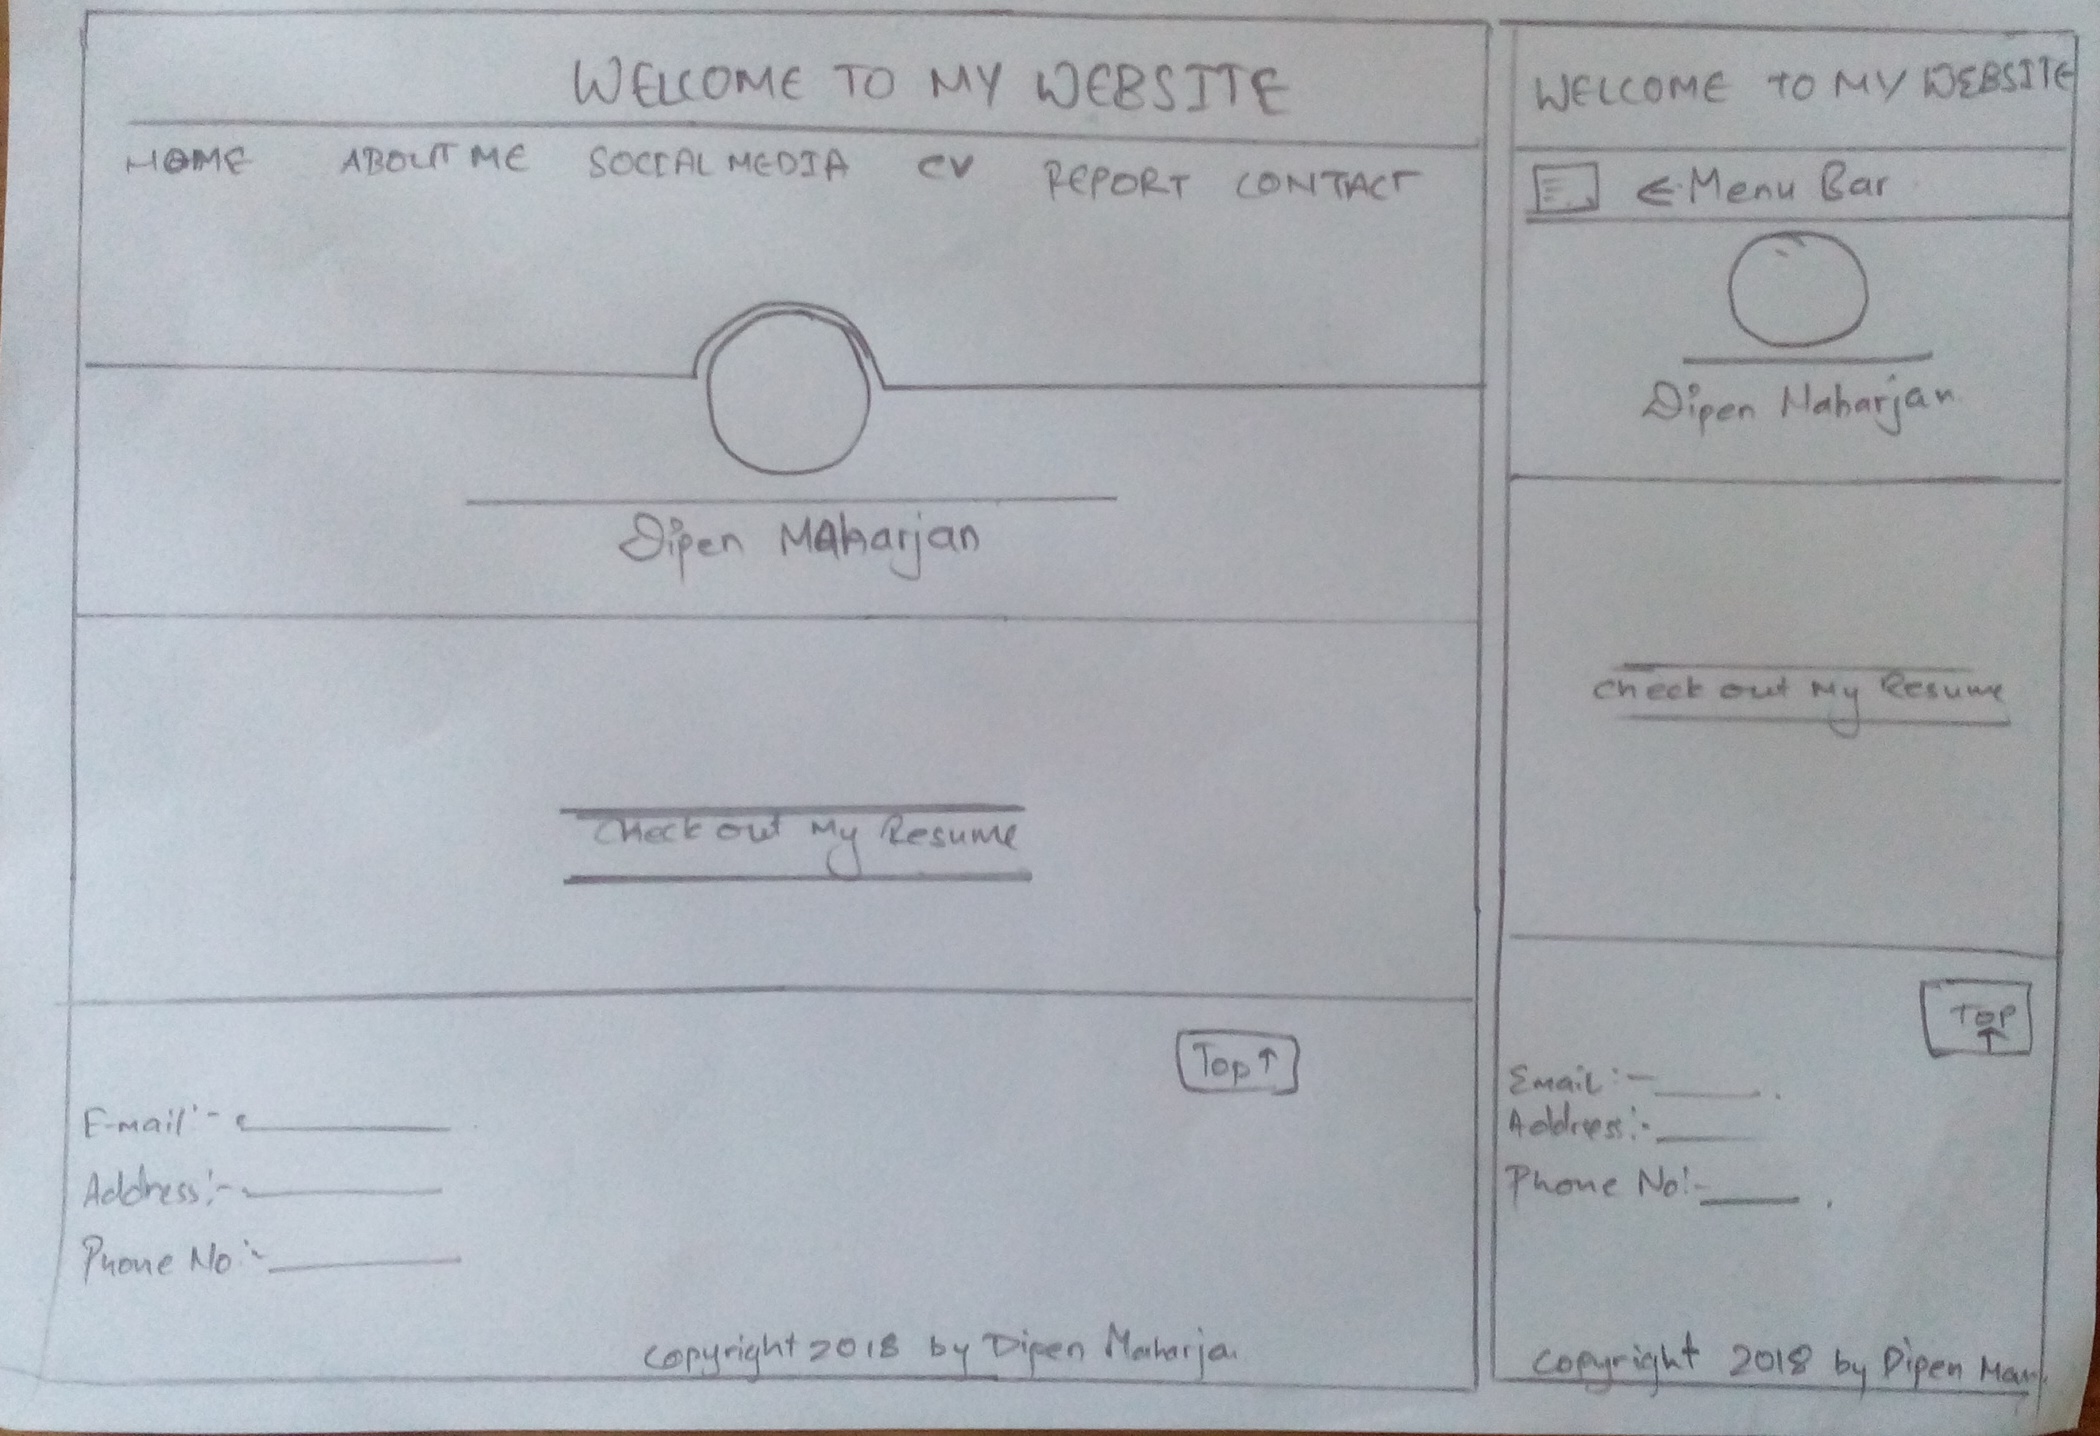 WELCOME TO MY WEBSITE
HOME ABOUT ME SOCIAL MEDIA CV REPORT CONTACT
Dipen Maharjan
Check out My Resume
Top ↑
E-mail :-
Address :-
Phone No :-
Copyright 2018 by Dipen Maharja
WELCOME TO MY WEBSITE
← Menu Bar
Dipen Maharjan
Check out My Resume
TOP
↑
Email :-
Address :-
Phone No :-
Copyright 2018 by Dipen